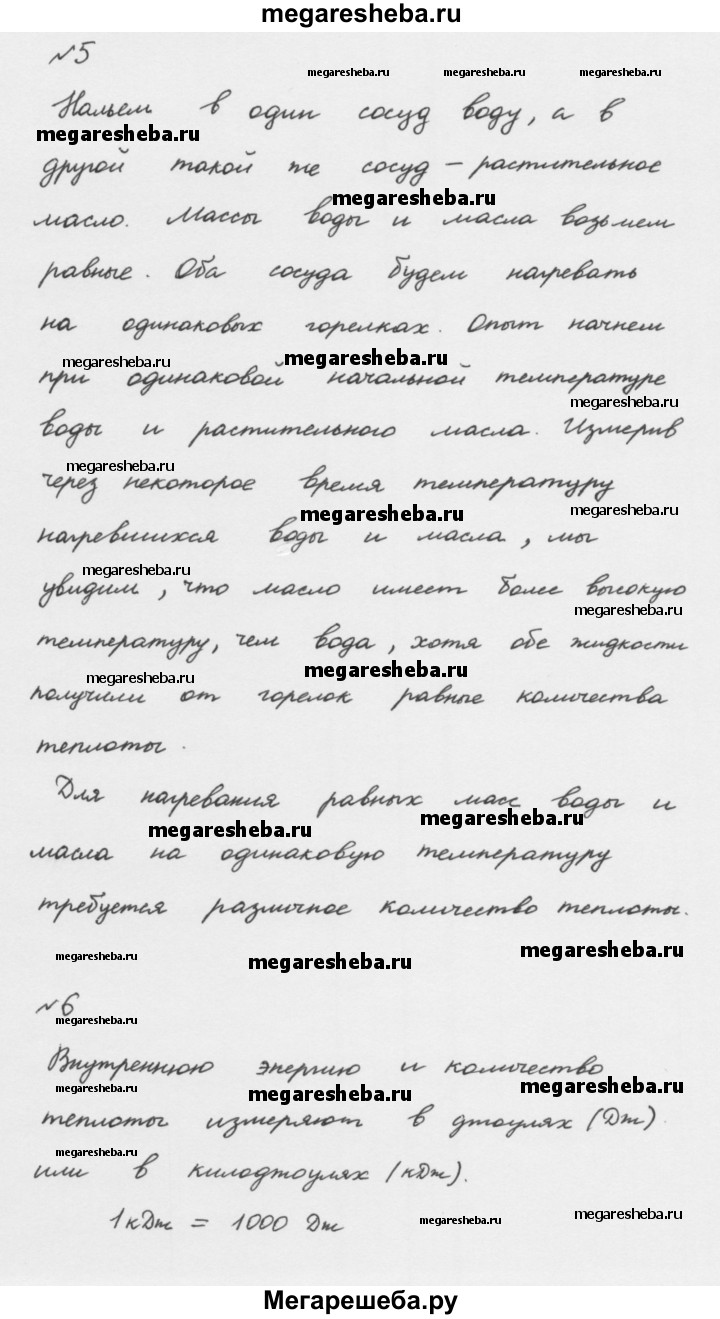 megaresheba.ru
№5
megaresheba.ru megaresheba.ru megaresheba.ru
Нальем в один сосуд воду, а в
megaresheba.ru
другой такой же сосуд – растительное
megaresheba.ru
масло. Массы воды и масла возьмем
равные. Оба сосуда будем нагревать
на одинаковых горелках. Опыт начнем
megaresheba.ru megaresheba.ru
при одинаковой начальной температуре
megaresheba.ru
воды и растительного масла. Измерив
megaresheba.ru
через некоторое время температуру
megaresheba.ru megaresheba.ru
нагревшихся воды и масла, мы
megaresheba.ru
увидим, что масло имеет более высокую
megaresheba.ru
температуру, чем вода, хотя обе жидкости
megaresheba.ru megaresheba.ru
получили от горелок равные количества
теплоты.
Для нагревания равных масс воды и
megaresheba.ru megaresheba.ru
масла на одинаковую температуру
требуется различное количество теплоты.
megaresheba.ru megaresheba.ru megaresheba.ru
№6
megaresheba.ru
Внутреннюю энергию и количество
megaresheba.ru megaresheba.ru megaresheba.ru
теплоты измеряют в джоулях (Дж)
megaresheba.ru
или в килоджоулях (кДж).
1кДж = 1000 Дж
megaresheba.ru megaresheba.ru
Мегарешеба.ру